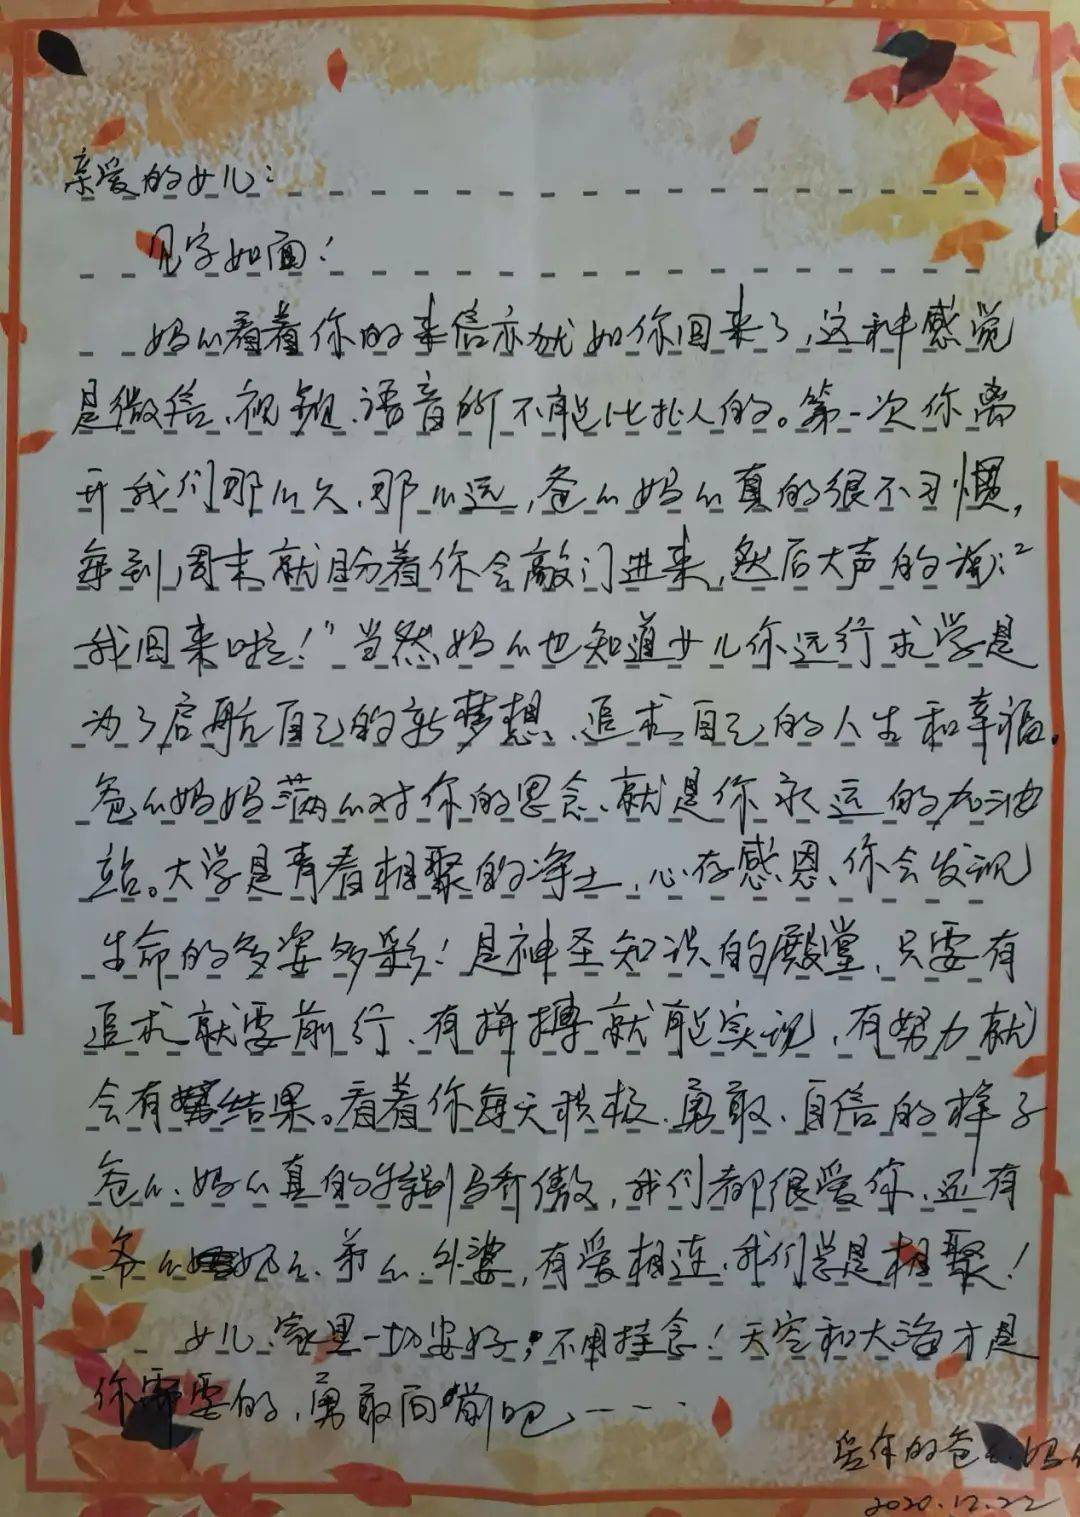 亲爱的女儿：
见字如面！
妈々看着你的来信亦就如你回来了，这种感觉
是微信、视频、语音所不能比拟的。第一次你离
开我们那么久、那么远，爸々妈々真的很不习惯，
每到周末就盼着你会敲门进来，然后大声的说："
我回来啦！"当然妈々也知道女儿你远行求学是
为了启航自己的新梦想、追求自己的人生和幸福。
爸々妈妈满々对你的思念、就是你永远的加油
站。大学是青春相聚的净土，心存感恩、你会发现
生命的多姿多彩！是神圣知识的殿堂，只要有
追求就要前行、有拼搏就能实现，有努力就
会有结果。看着你每天积极、勇敢、自信的样子
爸々、妈々真的特别骄傲，我们都很爱你、还有
爷々奶々、弟々、外婆，有爱相连、我们总是相聚！
女儿、家里一切安好，不用挂念！天空和大海才是
你需要的，勇敢向前吧、----
爱你的爸々、妈々
2020.12.22